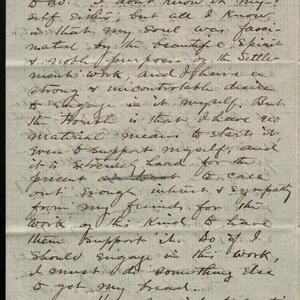 to do. I don't know it my-
self either, but all I know
is that my soul was fasci-
nated by the beautiful spirit
& noble purposes of the Settle-
ment work, and I have a
strong & uncontrolable desire
to engage in it myself. But
the trouble is that I have no
material means to start it or
even to support myself, and
it is extremely hard for the
present to call
out enough interest & sympathy
from my friends for the
work of this kind to have
them support it. So if I
should engage in this work,
I must do something else
to get my bread.